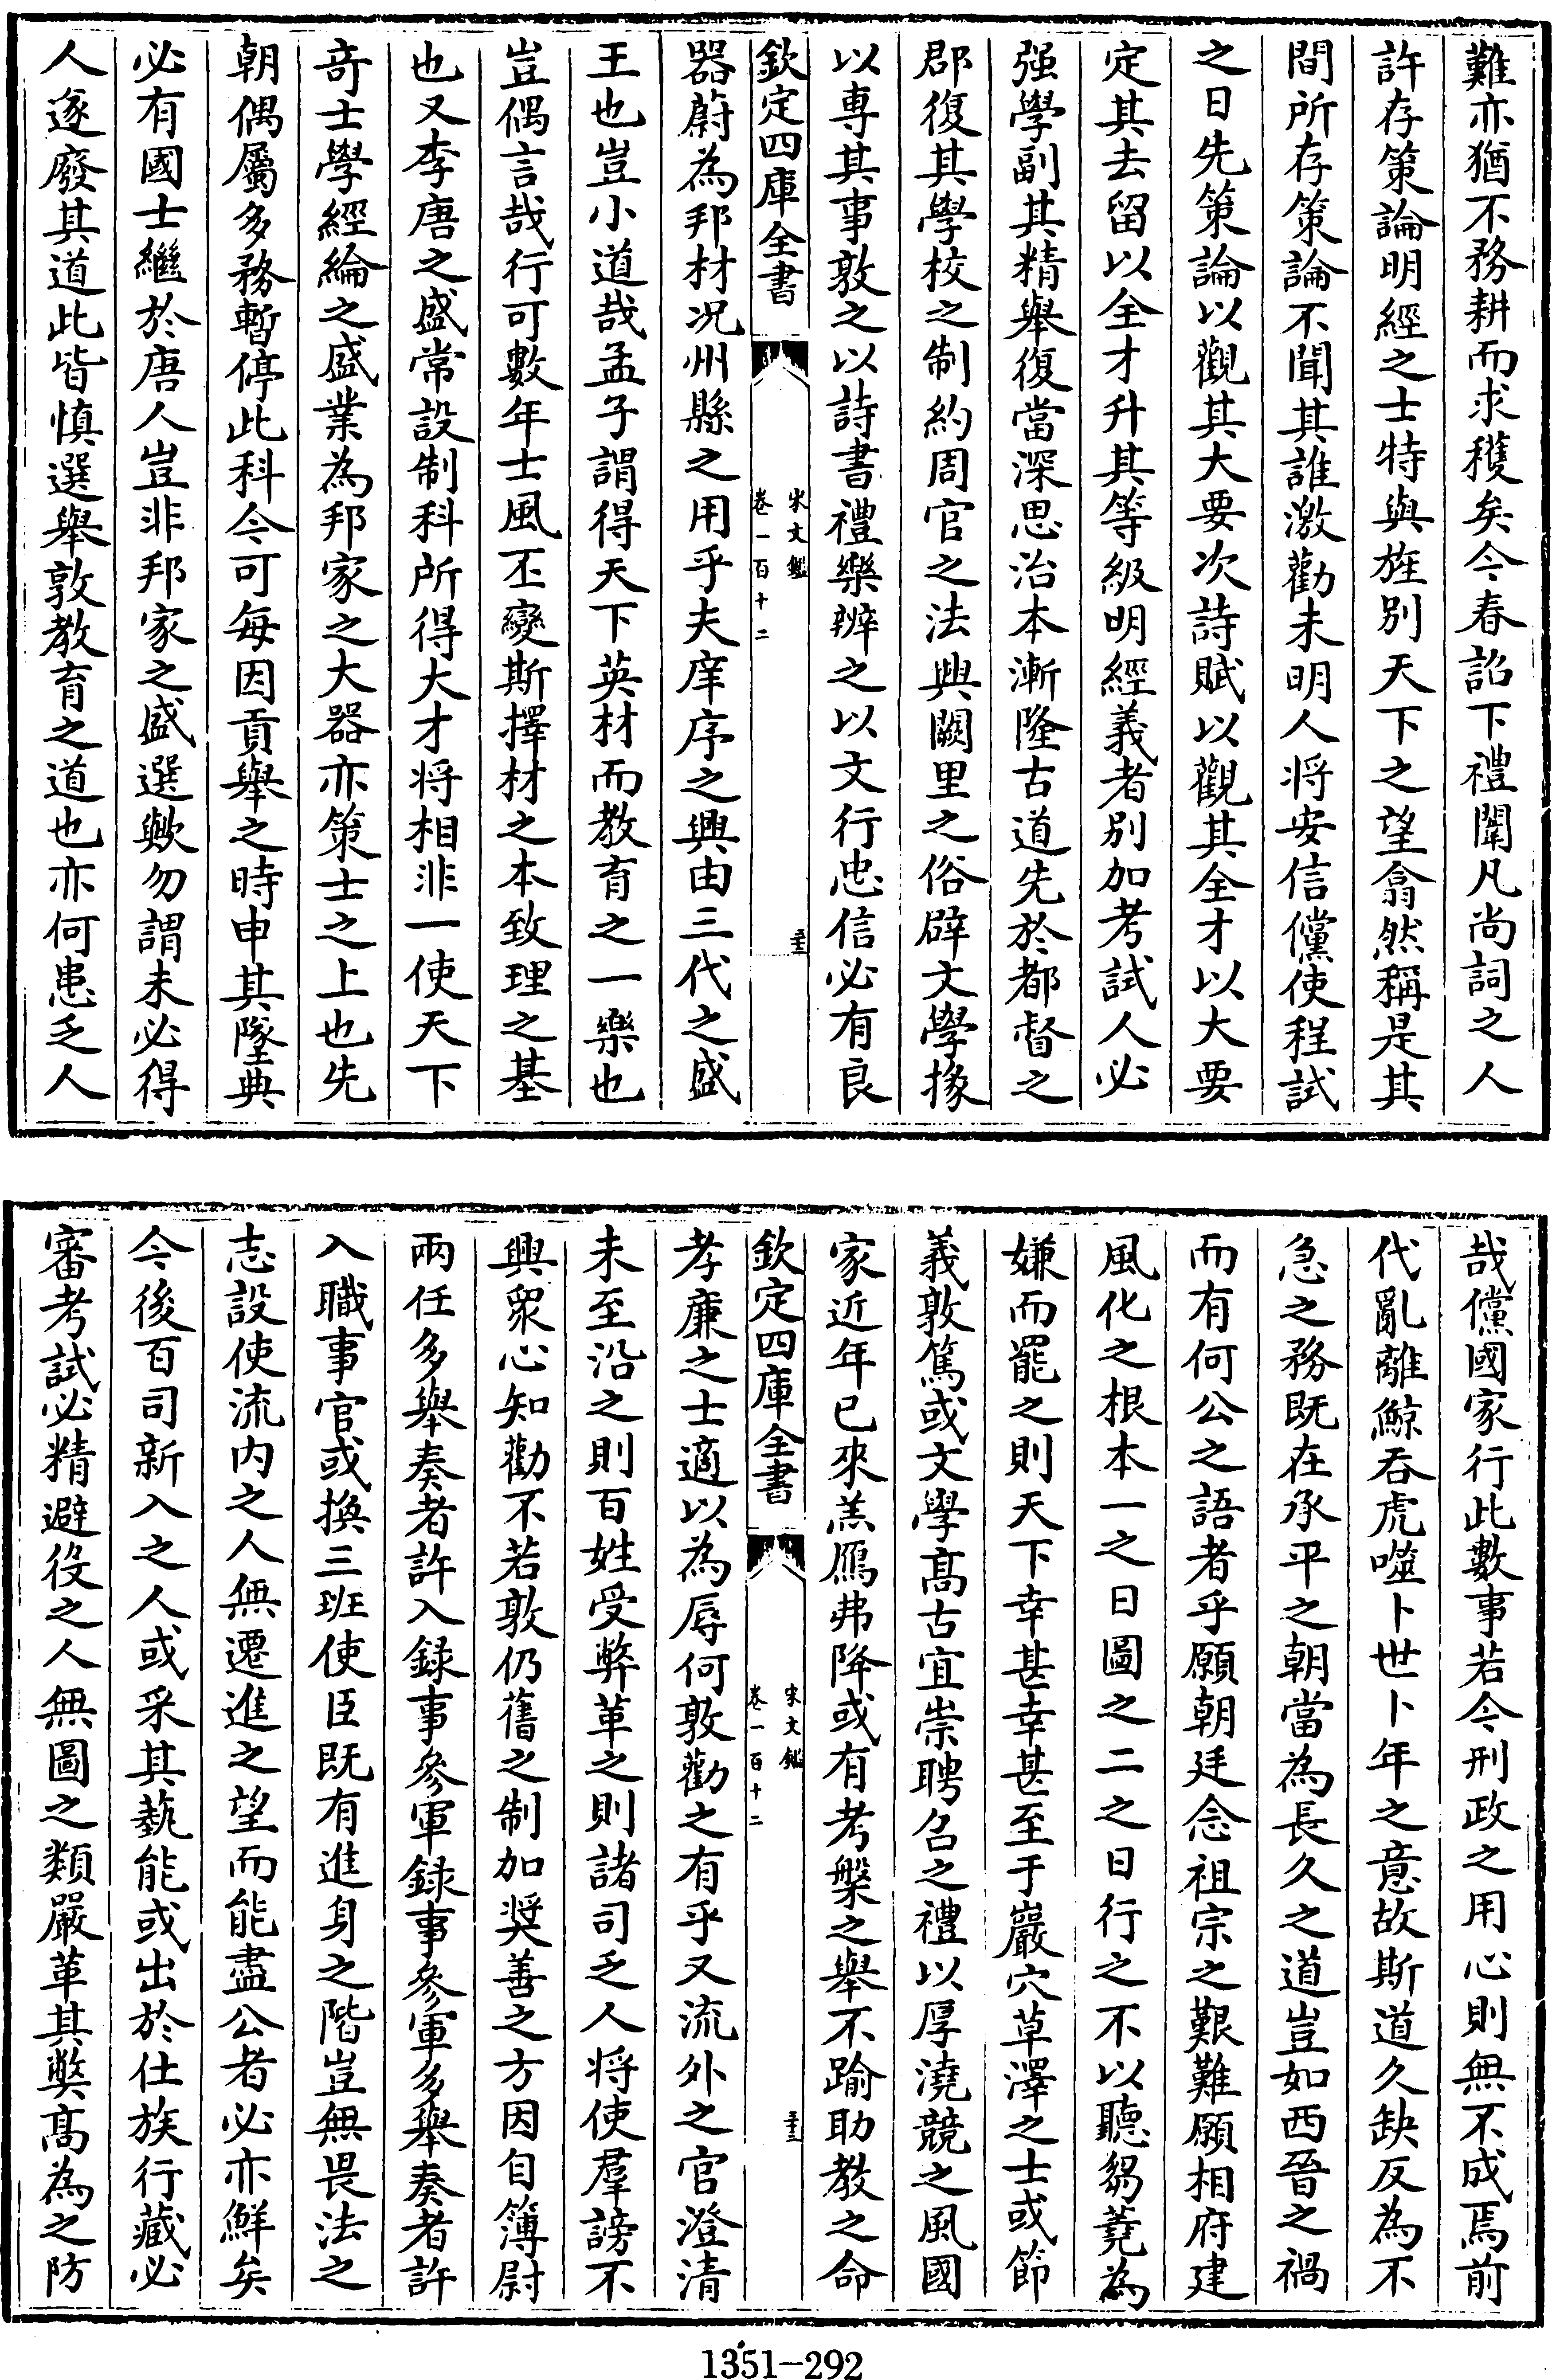 難亦猶不務耕而求穫矣今春詔下禮闈凡尚詞之人
許存策論明經之士特與旌别天下之望翕然稱是其
間所存策論不聞其誰激勸未明人将安信儻使程試
之日先策論以觀其大要次詩賦以觀其全才以大要
定其去留以全才升其等級明經義者别加考試人必
强學副其精舉復當深思治本漸隆古道先於都督之
郡復其學校之制約周官之法興闕里之俗辟文學掾
以專其事敦之以詩書禮樂辨之以文行忠信必有良
欽定四庫全書
宋文鑑
卷一百十二
器蔚為邦材况州縣之用乎夫庠序之興由三代之盛
王也豈小道哉孟子謂得天下英材而教育之一樂也
豈偶言哉行可數年士風丕變斯擇材之本致理之基
也又李唐之盛常設制科所得大才将相非一使天下
奇士學經綸之盛業為邦家之大器亦策士之上也先
朝偶屬多務暫停此科今可每因貢舉之時申其墜典
必有國士繼於唐人豈非邦家之盛選歟勿謂未必得
人遂廢其道此皆慎選舉敦教育之道也亦何患乏人
哉儻國家行此數事若今刑政之用心則無不成焉前
代亂離鯨吞虎噬卜世卜年之意故斯道久缺反為不
急之務既在承平之朝當為長久之道豈如西晉之禍
而有何公之語者乎願朝廷念祖宗之艱難願相府建
風化之根本一之日圖之二之日行之不以聽芻蕘為
嫌而罷之則天下幸甚幸甚至于巖穴草澤之士或節
義敦篤或文學髙古宜崇聘召之禮以厚澆競之風國
家近年已來羔鴈弗降或有考槃之舉不踰助教之命
欽定四庫全書
宋文鑑
卷一百十二
孝廉之士適以為辱何敦勸之有乎又流外之官澄清
未至沿之則百姓受弊革之則諸司乏人将使羣謗不
興衆心知勸不若敦仍舊之制加奬善之方因自簿尉
兩任多舉奏者許入録事參軍録事參軍多舉奏者許
入職事官或換三班使臣既有進身之階豈無畏法之
志設使流内之人無遷進之望而能盡公者必亦鮮矣
今後百司新入之人或采其藝能或出於仕族行藏必
審考試必精避役之人無圖之類嚴革其弊髙為之防
1351-292